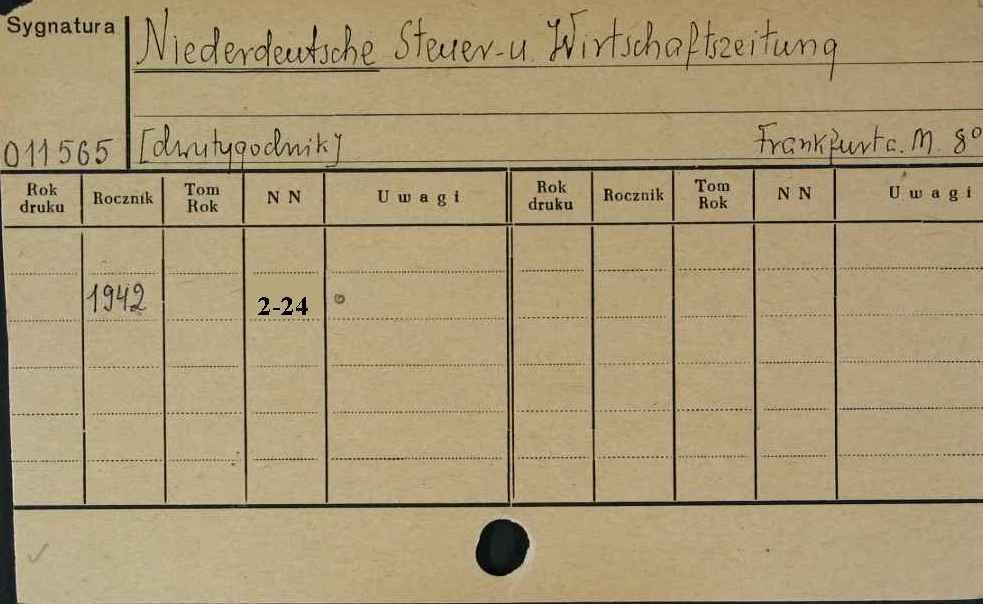 Sygnatura
Niederdeutsche Steuer-u. Wirtschaftszeitung
011565
[dwutygodnik]
Frankfurt a. M. 8°
Rok druku Rocznik Tom Rok N N Uwagi Rok druku Rocznik Tom Rok N N Uwagi
1942 2-24